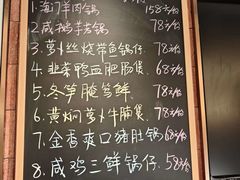 1.海门羊肉锅 158元/份
2.咸鹅芋艿锅 78元/份
3.萝卜丝烧带鱼锅仔 78元/份
4.韭菜鸭血肥肠煲 68元/份
5.冬笋腌笃鲜 78元/份
6.黄焖萝卜牛腩煲 78元/份
7.金香爽口猪肚锅 68元/份
8.咸鸡三鲜锅仔 58元/份